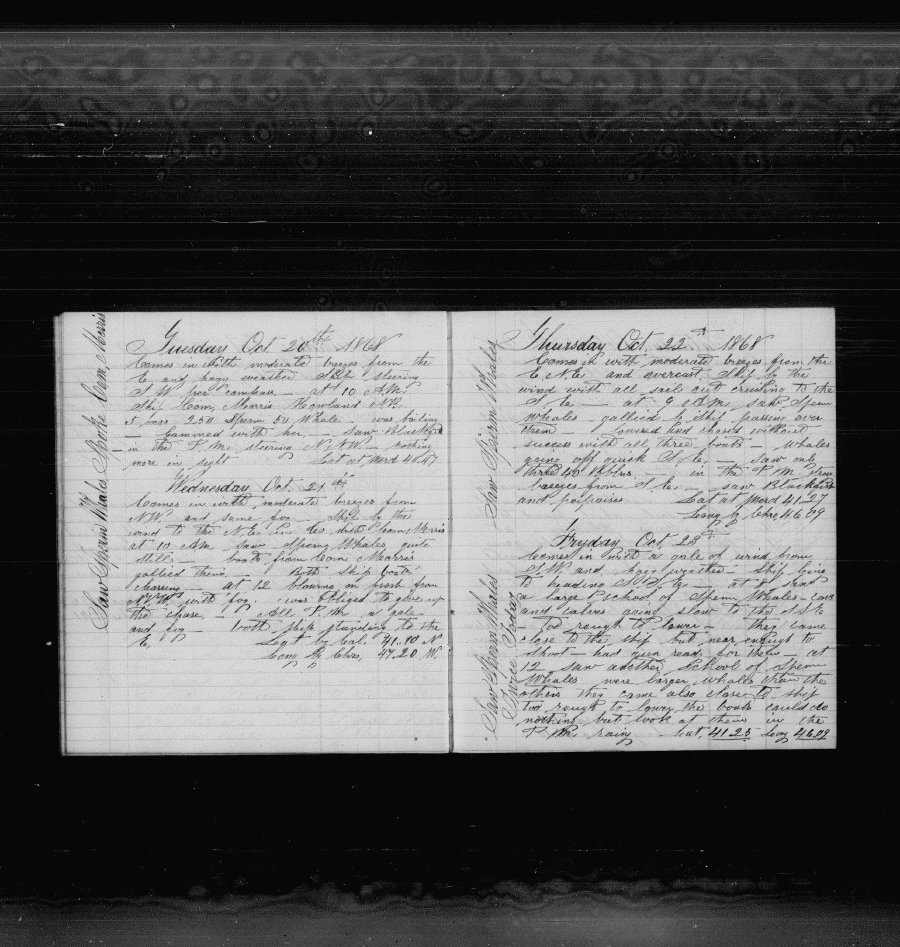 Saw Sperm Whales Spoke Com, Morris
Tuesday Oct. 20th 1868
Comes in with moderate breezes from the
E and hazy weather Ship steering
S.W. per compass — at 10 A.M.
Ship Com, Morris Howland N.B.
5 mos 250 Sperm 50 Whale, was boiling
— Gammed with her, saw Blackfish
— in the P.M. steering N.N.W. — nothing
more in sight Lat at Merd 40.47
Wednesday Oct. 21st
Comes in with moderate breezes from
N.W. and some fog — Ship by the
wind to the N.E. Com Morris
at 10 A.M. saw Sperm Whales quite
still — boats from Com Morris
gallied them, Both ships boats
chasing — at 12 blowing on fresh from
with fog, was obliged to give up
the chase, — All P.M. a gale
and fog — both ships standing to the
E, Lat by Cal. 41.10 N
Long by Chro, 47.20 W.
Saw Sperm Whales
Thursday Oct. 22nd 1868
Comes in with moderate breezes from the
E.N.E. and overcast Ship by the
wind with all sail out cruising to the
S.E. — at 9 A.M. saw Sperm
Whales gallied by ship passing over
them — lowered and chased without
success with all three boats — Whales
going off quick S.E. — saw only
three — in the P.M. strong
breezes from S.E. — saw Blackfish
and porpoises Lat at Merd 41.27
Long by Chro, 46.09
Saw Sperm Whales
Twice Today
Fryday Oct 23rd
Comes in with a gale of wind from
S.W. and hazy weather — Ship lying
to heading — at 8 saw
a large school of Sperm Whales — cows
and calves going slow to the S.S.E
— Too rough to lower — They came
close to the ship but near enough to
shoot — had gun ready for them — at
12 saw another School of Sperm
Whales were larger whales than the
others they came also close to ship
too rough to lower the boats could do
nothing but look at them in the
P.M. rainy Lat, 41.25 Long 46.09